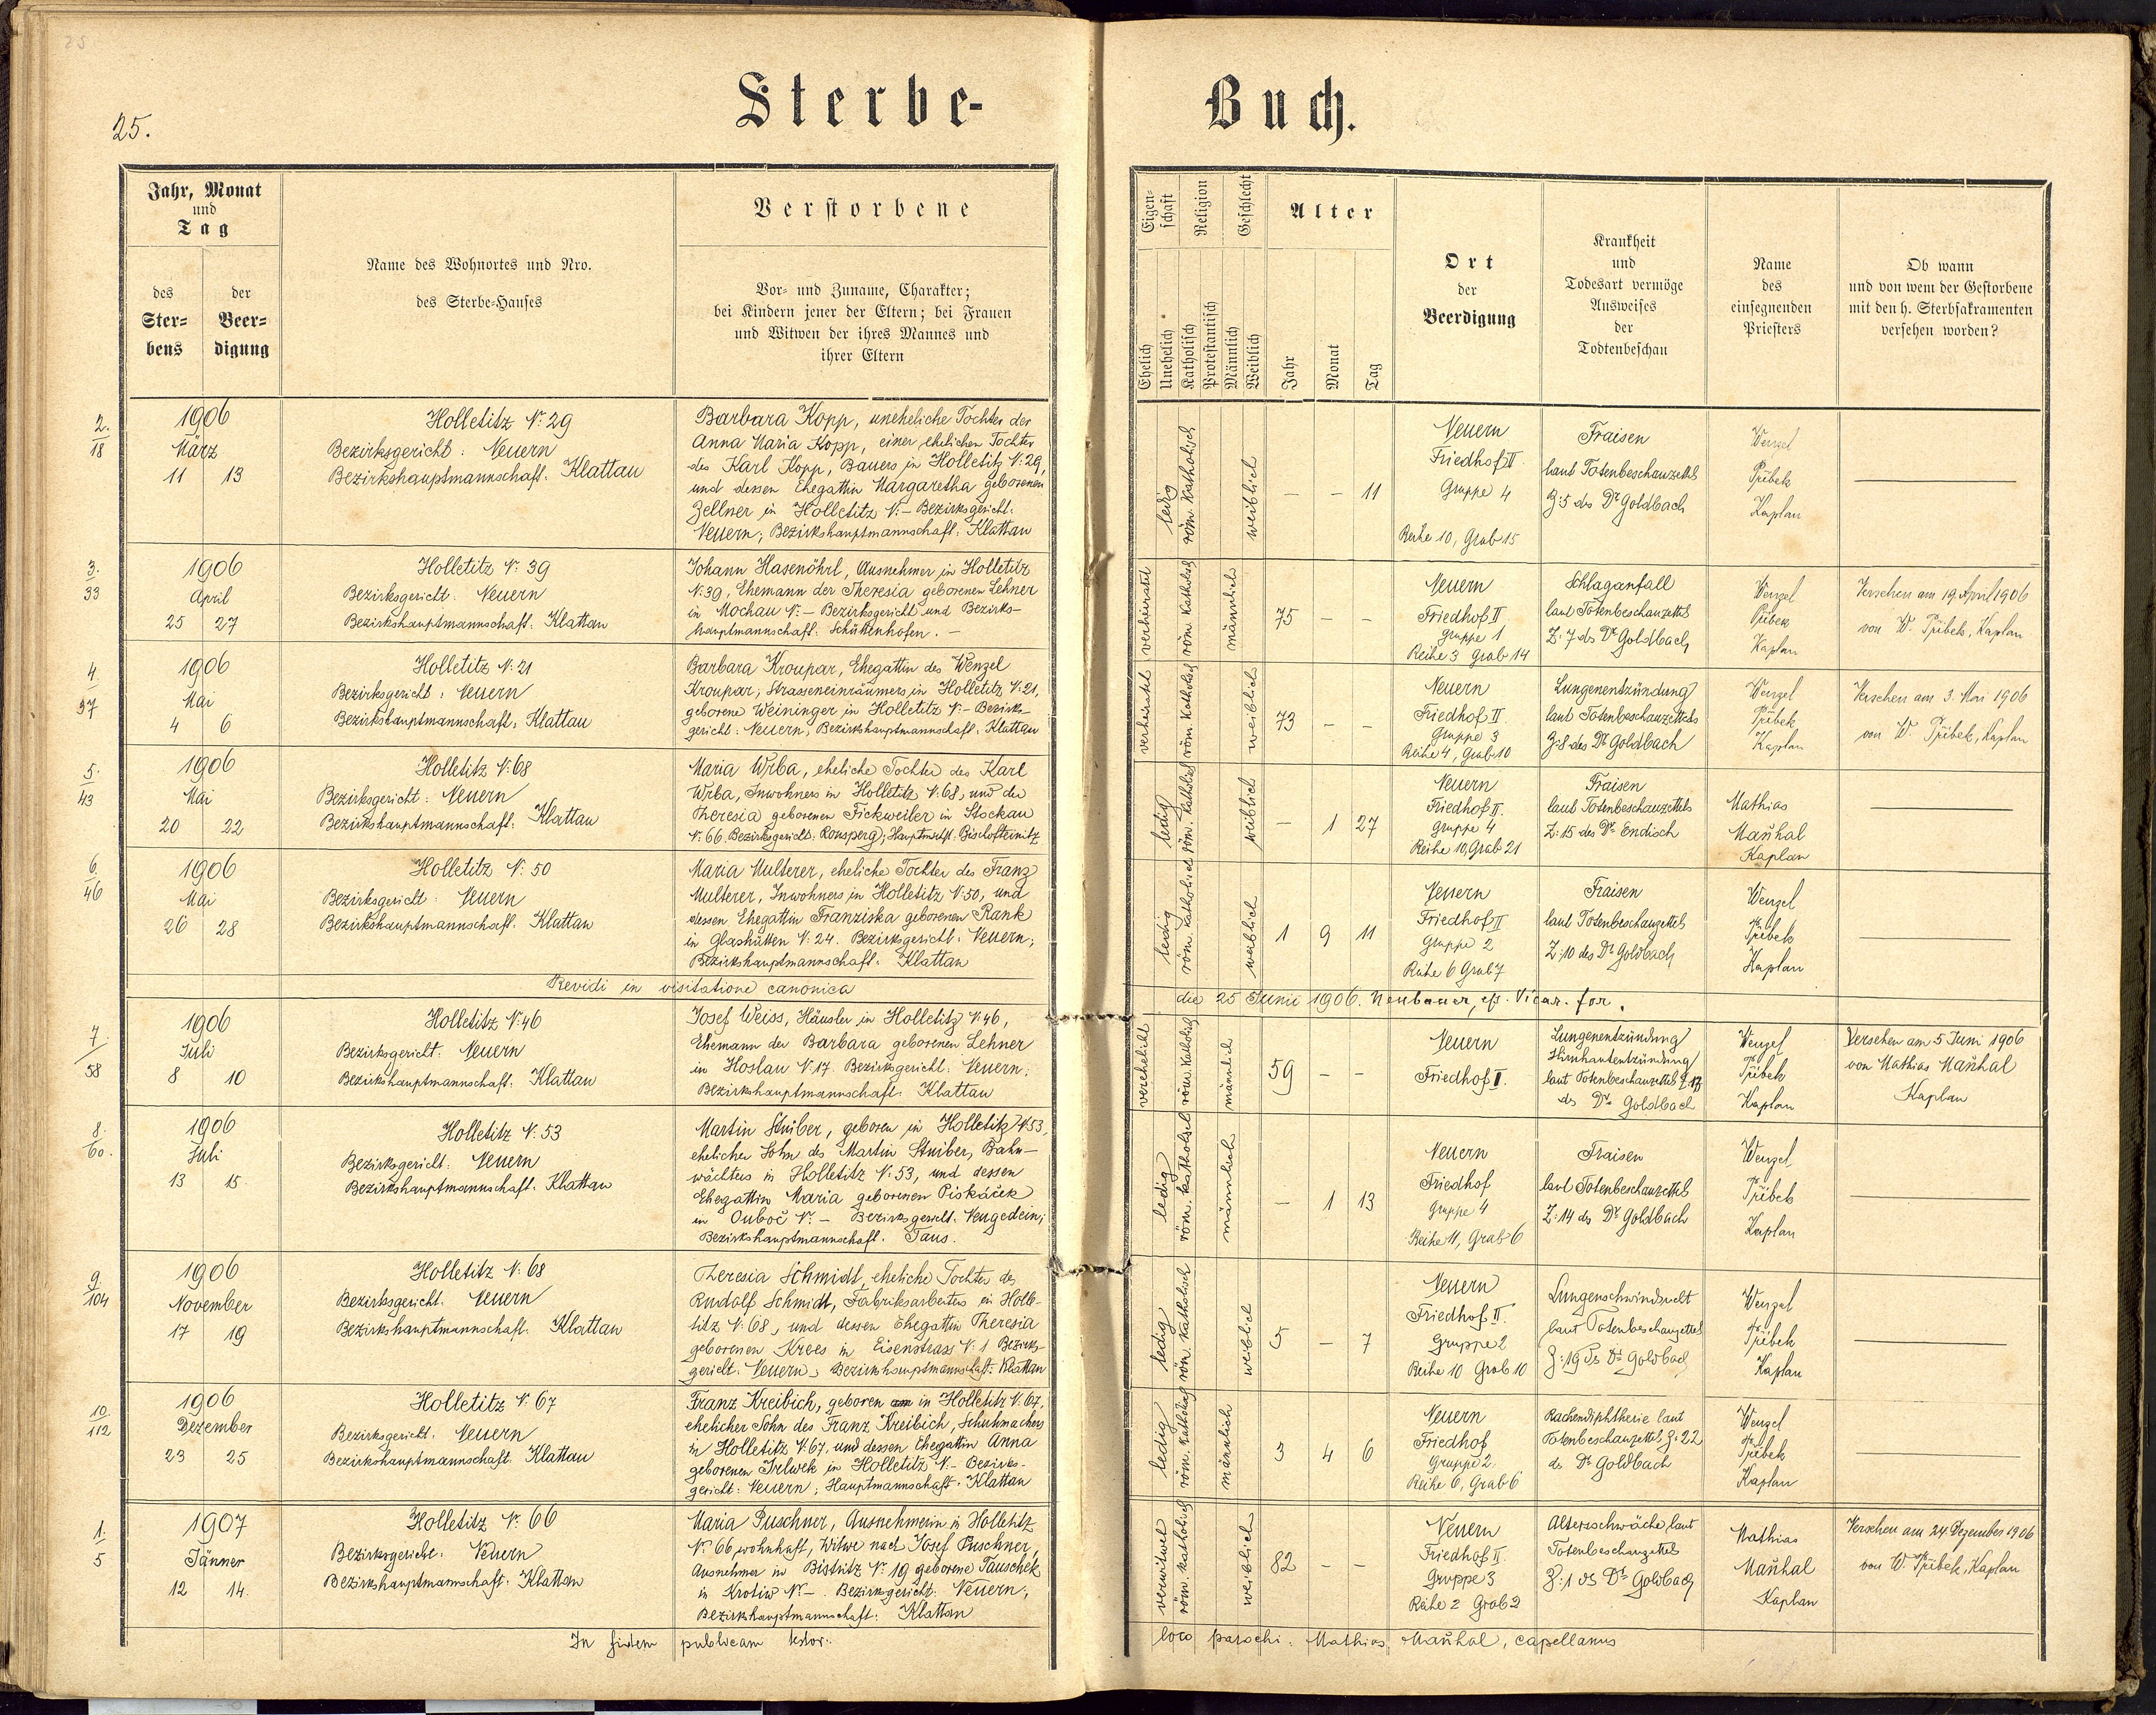 25.
Sterbe-Buch.
Jahr, Monat
und
Tag
des
Ster=
bens
der
Beer=
digung
Name des Wohnortes und Nro.
des Sterbe-Hauses
Verstorbene
Vor- und Zuname, Charakter;
bei Kindern jener der Eltern; bei Frauen
und Witwen der ihres Mannes und
ihrer Eltern
Eigen=
schaft
Ehelich
Unehelich
Religion
Katholisch
Protestantisch
Geschlecht
Männlich
Weiblich
Alter
Jahr
Monat
Tag
Ort
der
Beerdigung
Krankheit
und
Todesart vermöge
Ausweises
der
Todtenbeschau
Name
des
einsegnenden
Priesters
Ob wann
und von wem der Gestorbene
mit den h. Sterbsakramenten
versehen worden?
2.
18
1906
März
11 13
Holletitz N: 29
Bezirksgericht: Neuern
Bezirkshauptmannschaft: Klattau
Barbara Kopp, uneheliche Tochter der
Anna Maria Kopp, einer ehelichen Tochter
des Karl Kopp, Bauers in Holletitz N: 29,
und dessen Ehegattin Margaretha geborenen
Zellner in Holletitz N: – Bezirksgericht:
Neuern; Bezirkshauptmannschaft: Klattau
ledig
röm. katholisch
weiblich
– – 11
Neuern
Friedhof II
Gruppe 4
Reihe 10, Grab 15
Fraisen
laut Totenbeschauzettels
Z: 5 des Dr Goldbach
Wenzel
Přibek
Kaplan
3.
33
1906
April
25 27
Holletitz N: 39
Bezirksgericht: Neuern
Bezirkshauptmannschaft: Klattau
Johann Hasenöhrl, Ausnehmer in Holletitz
N: 39, Ehemann der Theresia geborenen Lehner
in Mochau N: – Bezirksgericht und Bezirks-
hauptmannschaft: Schüttenhofen. –
verheiratet
röm. katholisch
männlich
75 – –
Neuern
Friedhof II
Gruppe 1
Reihe 3 Grab 14
Schlaganfall
laut Totenbeschauzettels
Z: 7 ds Dr Goldbach
Wenzel
Přibek
Kaplan
Versehen am 19 April 1906
von W. Přibek, Kaplan
4.
37
1906
Mai
4 6
Holletitz N: 21
Bezirksgericht: Neuern
Bezirkshauptmannschaft: Klattau
Barbara Kroupar, Ehegattin des Wenzel
Kroupar, Strasseneinräumers in Holletitz N: 21,
geborene Weininger in Holletitz N: – Bezirks-
gericht: Neuern; Bezirkshauptmannschaft: Klattau
verheiratet
röm. katholisch
weiblich
73 – –
Neuern
Friedhof II.
Gruppe 3
Reihe 4, Grab 10
Lungenentzündung
laut Totenbeschauzettels
Z: 8 des Dr Goldbach
Wenzel
Přibek
Kaplan
Versehen am 3. Mai 1906
von W. Přibek, Kaplan
5.
43
1906
Mai
20 22
Holletitz N: 68
Bezirksgericht: Neuern
Bezirkshauptmannschaft: Klattau
Maria Wrba, eheliche Tochter des Karl
Wrba, Inwohners in Holletitz N: 68, und der
Theresia geborenen Fickweiler in Stockau
N: 66. Bezirksgericht: Ronsperg; Hauptmschft: Bischofteinitz
ledig
röm. katholisch
weiblich
– 1 27
Neuern
Friedhof II.
Gruppe 4
Reihe 10, Grab 21
Fraisen
laut Totenbeschauzettels
Z: 15 des Dr Endisch
Mathias
Maňhal
Kaplan
6.
46
1906
Mai
26 28
Holletitz N: 50
Bezirksgericht: Neuern
Bezirkshauptmannschaft: Klattau
Maria Multerer, eheliche Tochter des Franz
Multerer, Inwohners in Holletitz N: 50, und
dessen Ehegattin Franziska geborenen Rank
in Glashütten N: 24. Bezirksgericht: Neuern;
Bezirkshauptmannschaft: Klattau
ledig
röm. katholisch
weiblich
1 9 11
Neuern
Friedhof II
Gruppe 2
Reihe 6 Grab 7
Fraisen
laut Totenbeschauzettels
Z: 10 des Dr Goldbach
Wenzel
Přibek
Kaplan
Revidi in visitatione canonica die 25 Junii 1906. Neubauer, Vicar. for.
7.
58
1906
Juli
8 10
Holletitz N: 46
Bezirksgericht: Neuern
Bezirkshauptmannschaft: Klattau
Josef Weiss, Häusler in Holletitz N: 46,
Ehemann der Barbara geborenen Lehner
in Hoslau N: 17. Bezirksgericht: Neuern;
Bezirkshauptmannschaft: Klattau
verehelicht
röm. katholisch
männlich
59 – –
Neuern
Friedhof I.
Lungenentzündung
Hirnhautentzündung
laut Totenbeschauzettels Z. 13
ds Dr Goldbach
Wenzel
Přibek
Kaplan
Versehen am 5 Juni 1906
von Mathias Maňhal
Kaplan
8.
60.
1906
Juli
13 15
Holletitz N: 53
Bezirksgericht: Neuern
Bezirkshauptmannschaft: Klattau
Martin Stuiber, geboren in Holletitz N: 53,
ehelicher Sohn des Martin Stuiber, Bahn-
wächters in Holletitz N: 53, und dessen
Ehegattin Maria geborenen Piskáček
in Ouboč N: – Bezirksgericht: Neugedein;
Bezirkshauptmannschaft: Taus.
ledig
röm. katholisch
männlich
– 1 13
Neuern
Friedhof
Gruppe 4
Reihe 11, Grab 6
Fraisen
laut Totenbeschauzettels
Z: 14 ds Dr Goldbach
Wenzel
Přibek
Kaplan
9.
104
1906
November
17 19
Holletitz N: 68
Bezirksgericht: Neuern
Bezirkshauptmannschaft: Klattau
Theresia Schmidt, eheliche Tochter des
Rudolf Schmidt, Fabriksarbeiters in Holle-
titz N: 68, und dessen Ehegattin Theresia
geborenen Krees in Eisenstrass N: 1 Bezirks-
gericht: Neuern; Bezirkshauptmannschaft: Klattau
ledig
röm. katholisch
weiblich
5 – 7
Neuern
Friedhof II.
Gruppe 2
Reihe 10 Grab 10
Lungenschwindsucht
laut Totenbeschauzettel
Z: 19 ds Dr Goldbach
Wenzel
Přibek
Kaplan
10
112
1906
Dezember
23 25
Holletitz N: 67
Bezirksgericht: Neuern
Bezirkshauptmannschaft: Klattau
Franz Kreibich, geboren in Holletitz N: 67,
ehelicher Sohn des Franz Kreibich, Schuhmachers
in Holletitz N: 67, und dessen Ehegattin Anna
geborenen Irlwek in Holletitz N: – Bezirks-
gericht: Neuern; Hauptmannschaft: Klattau
ledig
röm. katholisch
männlich
3 4 6
Neuern
Friedhof
Gruppe 2.
Reihe 6, Grab 6
Rachendiphtherie laut
Totenbeschauzettels Z: 22
ds Dr Goldbach
Wenzel
Přibek
Kaplan
1.
5
1907
Jänner
12 14.
Holletitz N: 66
Bezirksgericht: Neuern
Bezirkshauptmannschaft: Klattau
Maria Puschner, Ausnehmerin in Holletitz
N: 66 wohnhaft, Witwe nach Josef Puschner,
Ausnehmer in Bistritz N: 19 geborene Tauschek
in Krotiw N: – . Bezirksgericht: Neuern;
Bezirkshauptmannschaft: Klattau
verwitwet
röm. katholisch
weiblich
82 – –
Neuern
Friedhof II.
Gruppe 3
Reihe 2 Grab 2
Altersschwäche laut
Totenbeschauzettels
Z: 1 ds Dr Goldbach
Mathias
Maňhal
Kaplan
Versehen am 24 Dezember 1906
von W. Přibek, Kaplan
In fidem publicam testor: loco parochi: Mathias Maňhal, capellanus